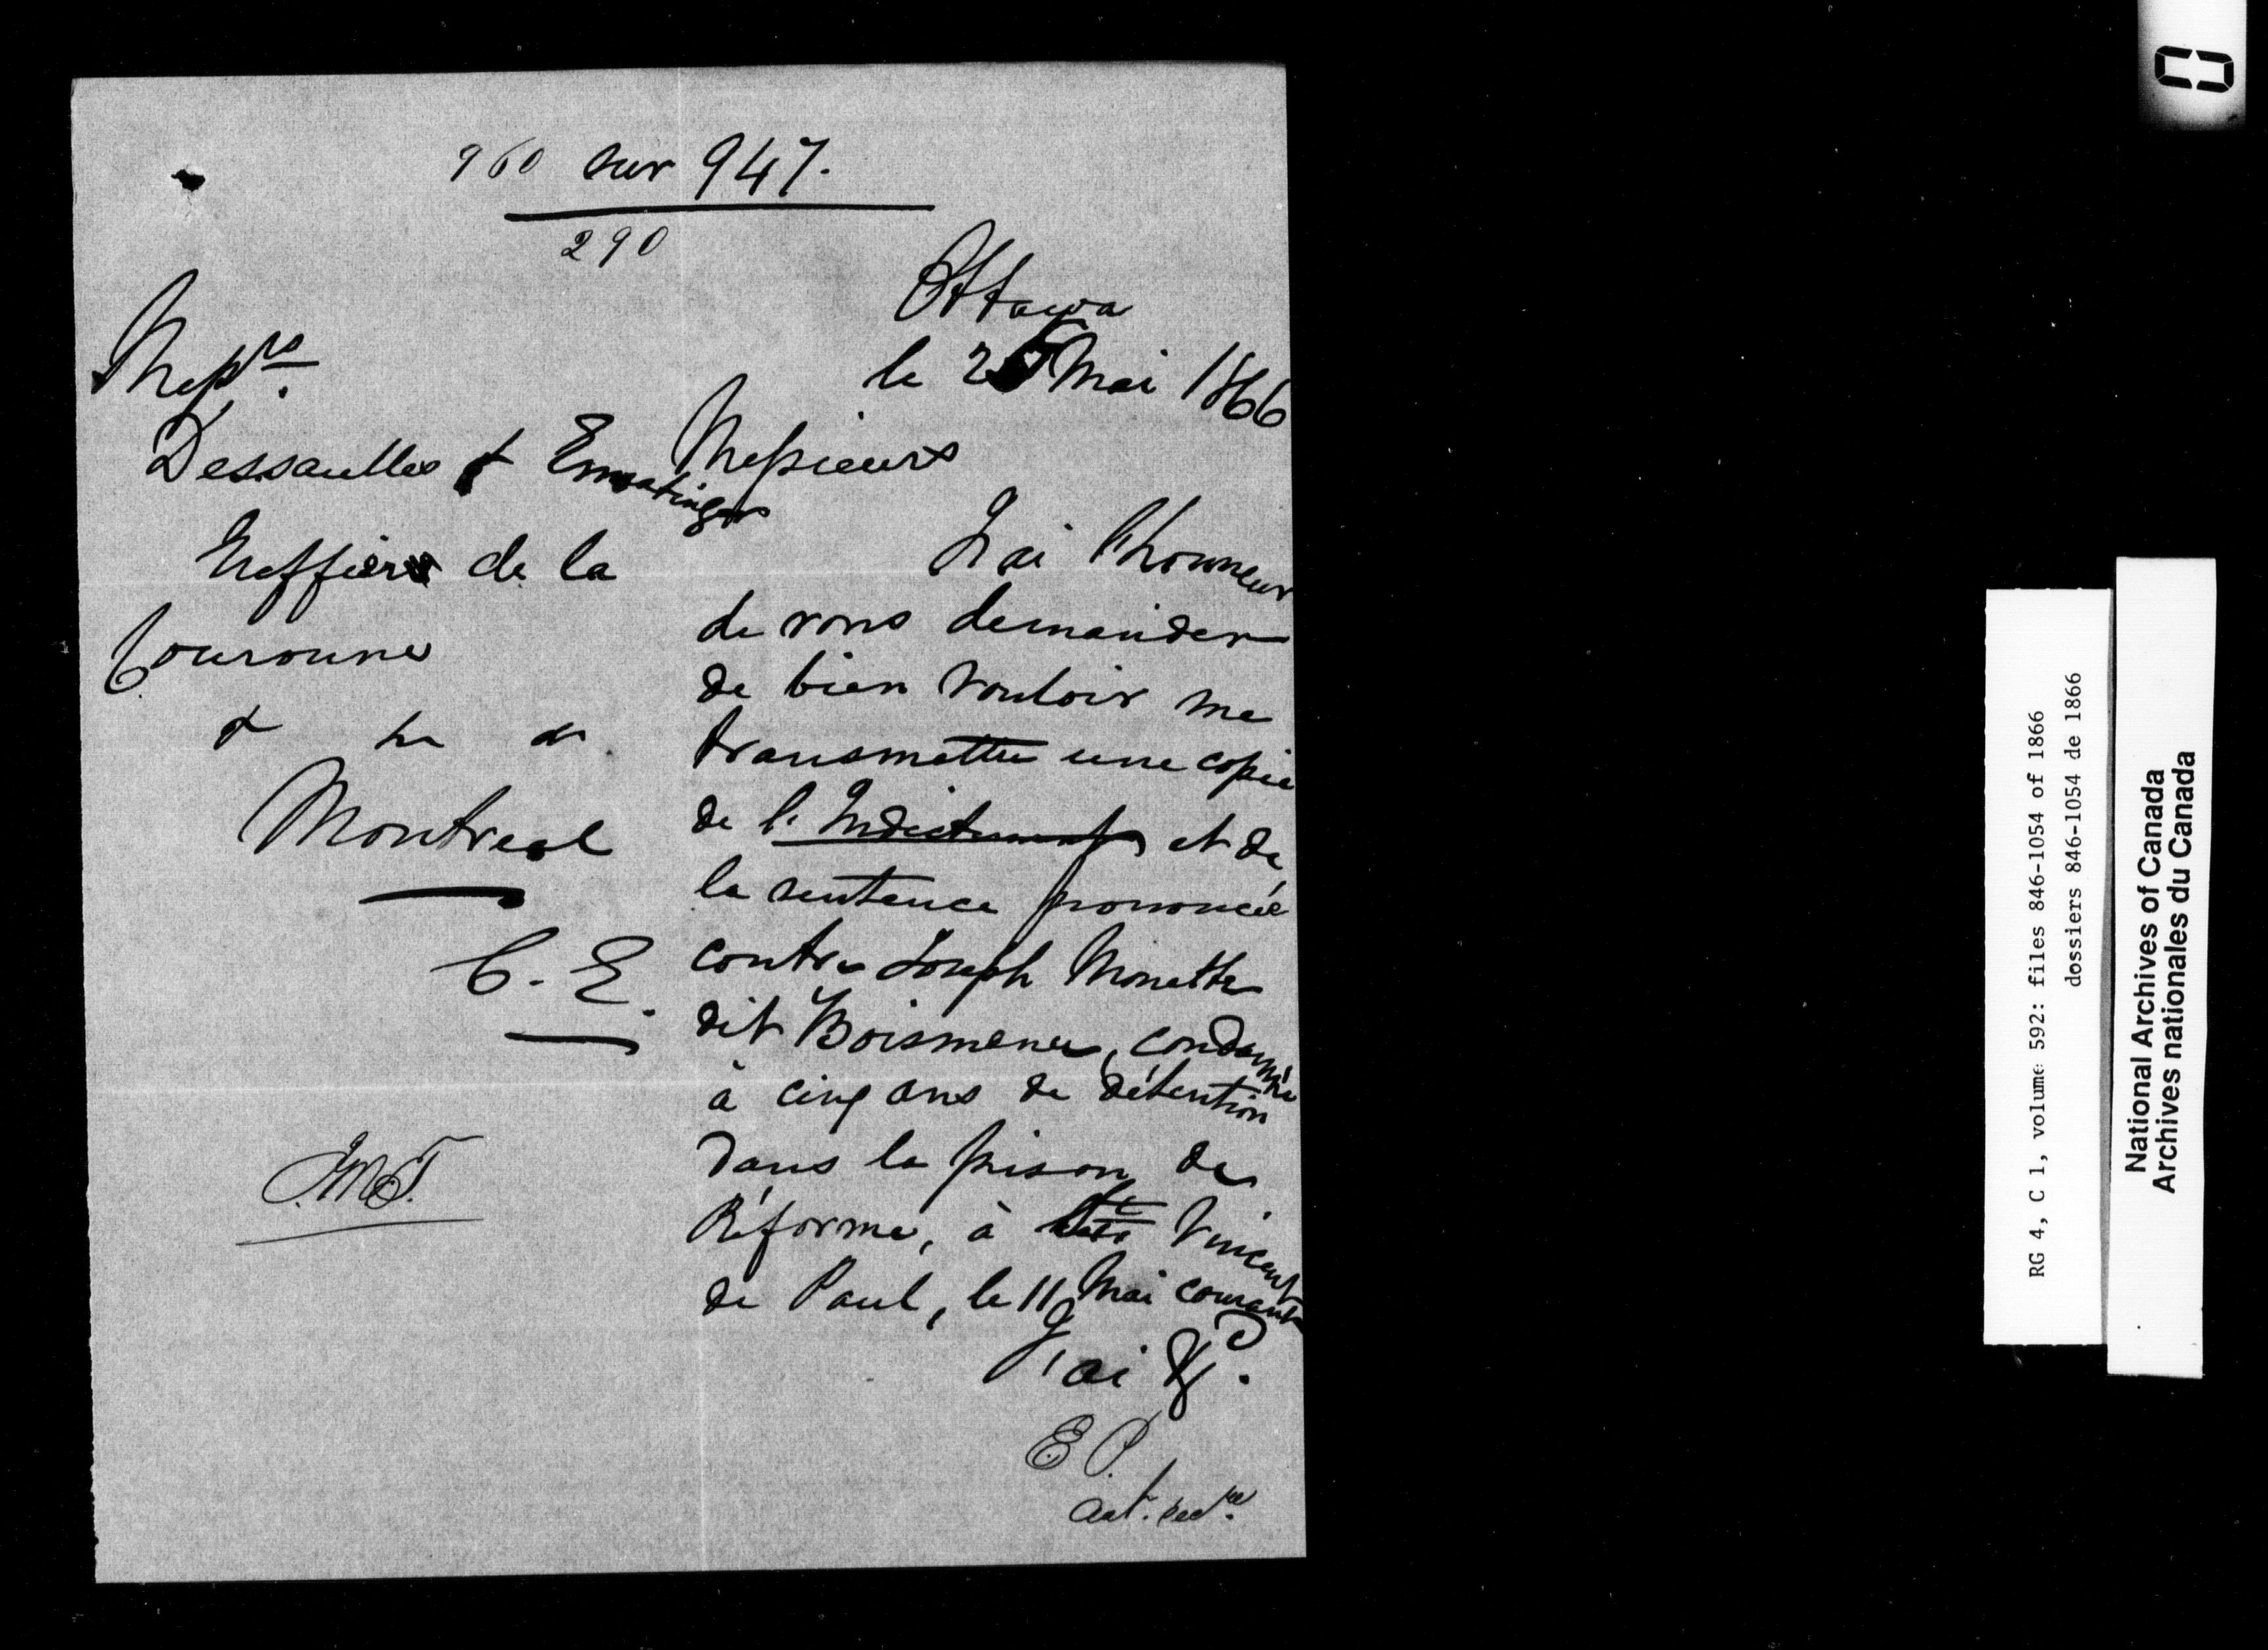 960 sur 947.
290
Ottawa
le 25 Mai 1866
Messrs.
Dessaulles & Ermatinger
Greffiers de la
Couronne
& &c &c.
Montreal
C. E.
J.M.T.
Messieurs
J'ai l'honneur
de vous demander
de bien vouloir me
transmettre une copie
de l'Indictment et de
la sentence prononcée
contre Joseph Monette
dit Boismenu, condamné
à cinq ans de détention
dans la prison de
Réforme, à St Vincent
de Paul, le 11 Mai courant
J'ai &c.
E P.
Act. secre.
0
RG 4, C 1, volume 592: files 846-1054 of 1866
dossiers 846-1054 de 1866
National Archives of Canada
Archives nationales du Canada